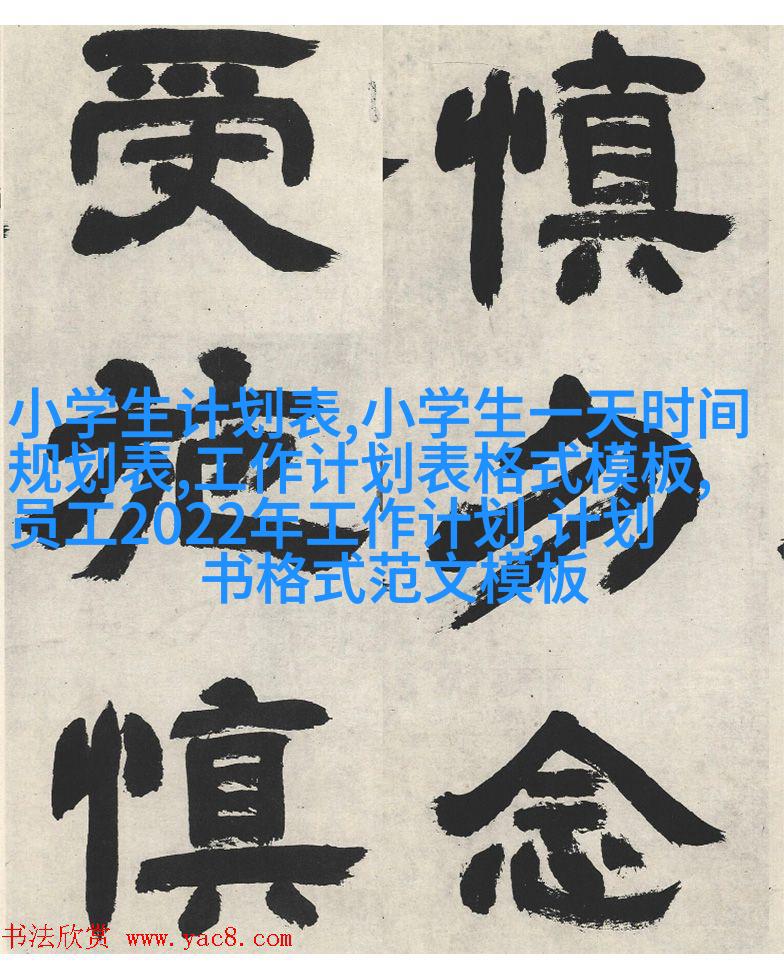 慎勿念
受施慎
小学生计划表,小学生一天时间
规划表,工作计划表格式模板,
员工2022年工作计划,计划
书格式范文模板
书法欣赏 www.yac8.com